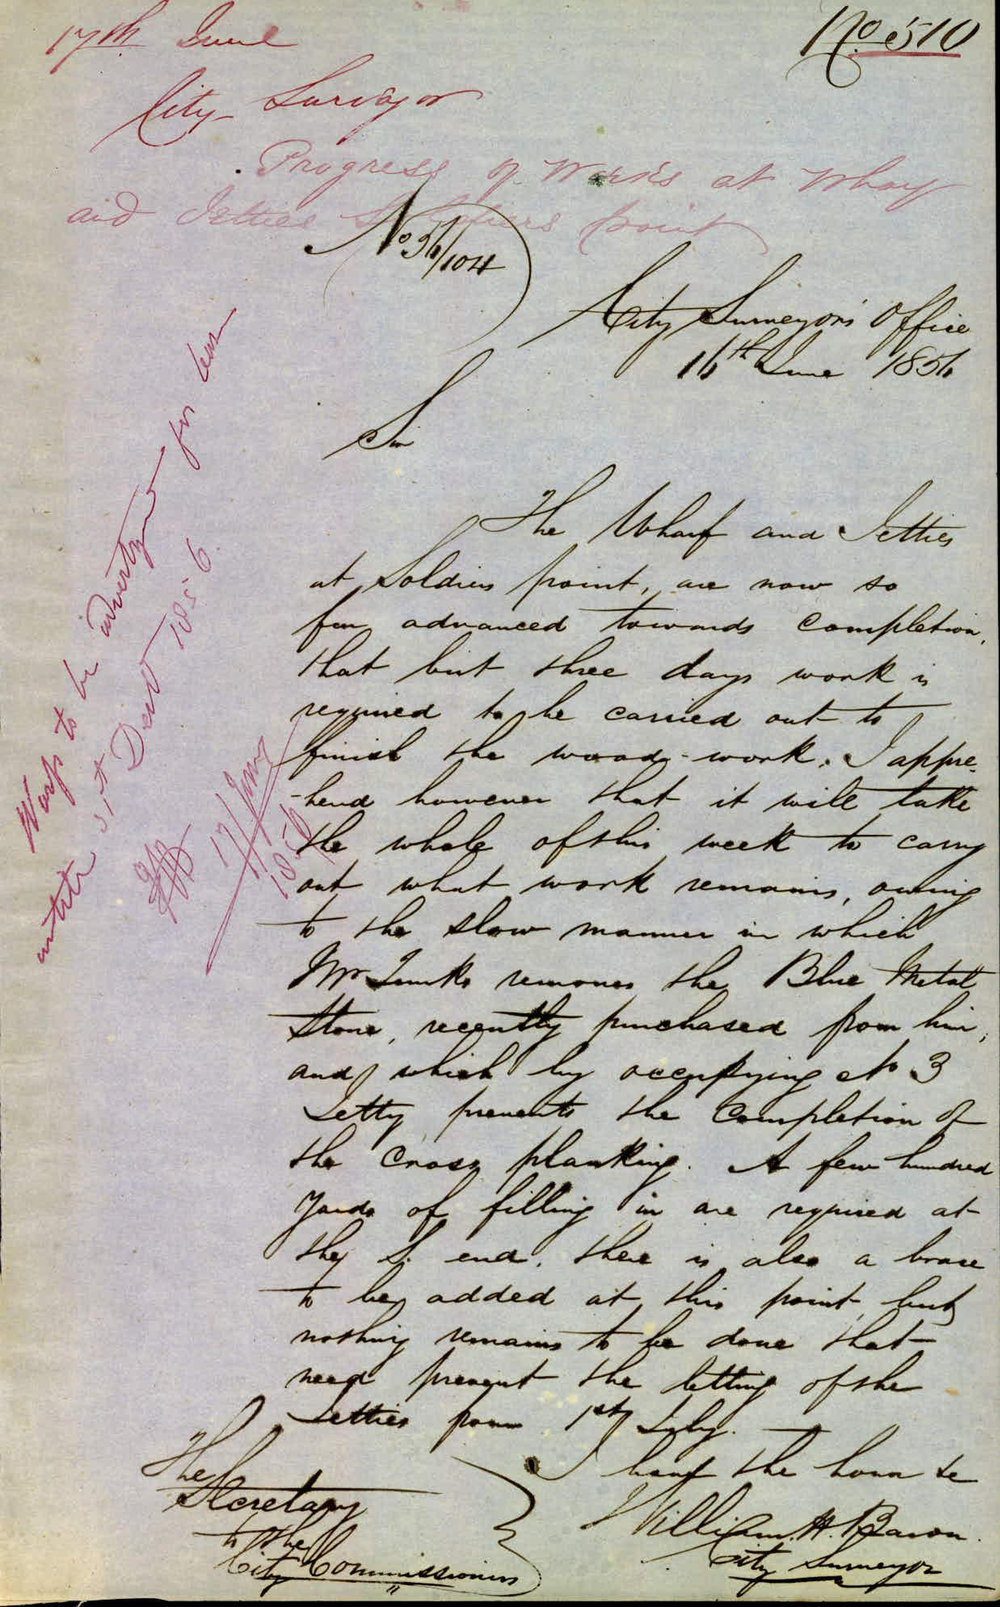 17th June
No 510
City Surveyor
Progress of Works at Wharf
and Jetties Soldiers point
No 56/104
City Surveyors Office
16th June 1856
Sir
The Wharf and Jetties
at Soldiers point, are now so
far advanced towards completion,
that but three days work is
required to be carried out to
finish the wood-work. I appre-
-hend however that it will take
the whole of this week to carry
out what work remains, owing
to the slow manner in which
Mr removes the Blue Metal
Stone, recently purchased from him,
and which by occupying No 3
Jetty prevents the completion of
the cross planking. A few hundred
yards of filling in are required at
the S. end. there is also a brace
to be added at this point but
nothing remains to be done that
need prevent the letting of the
Jetties from 1st July.
I have the honor &c
William H. Baron
City Surveyor
The
Secretary
to the
City Commissioners
Warfs to be advertised for
until 31st Decr 1856
17/June
1856